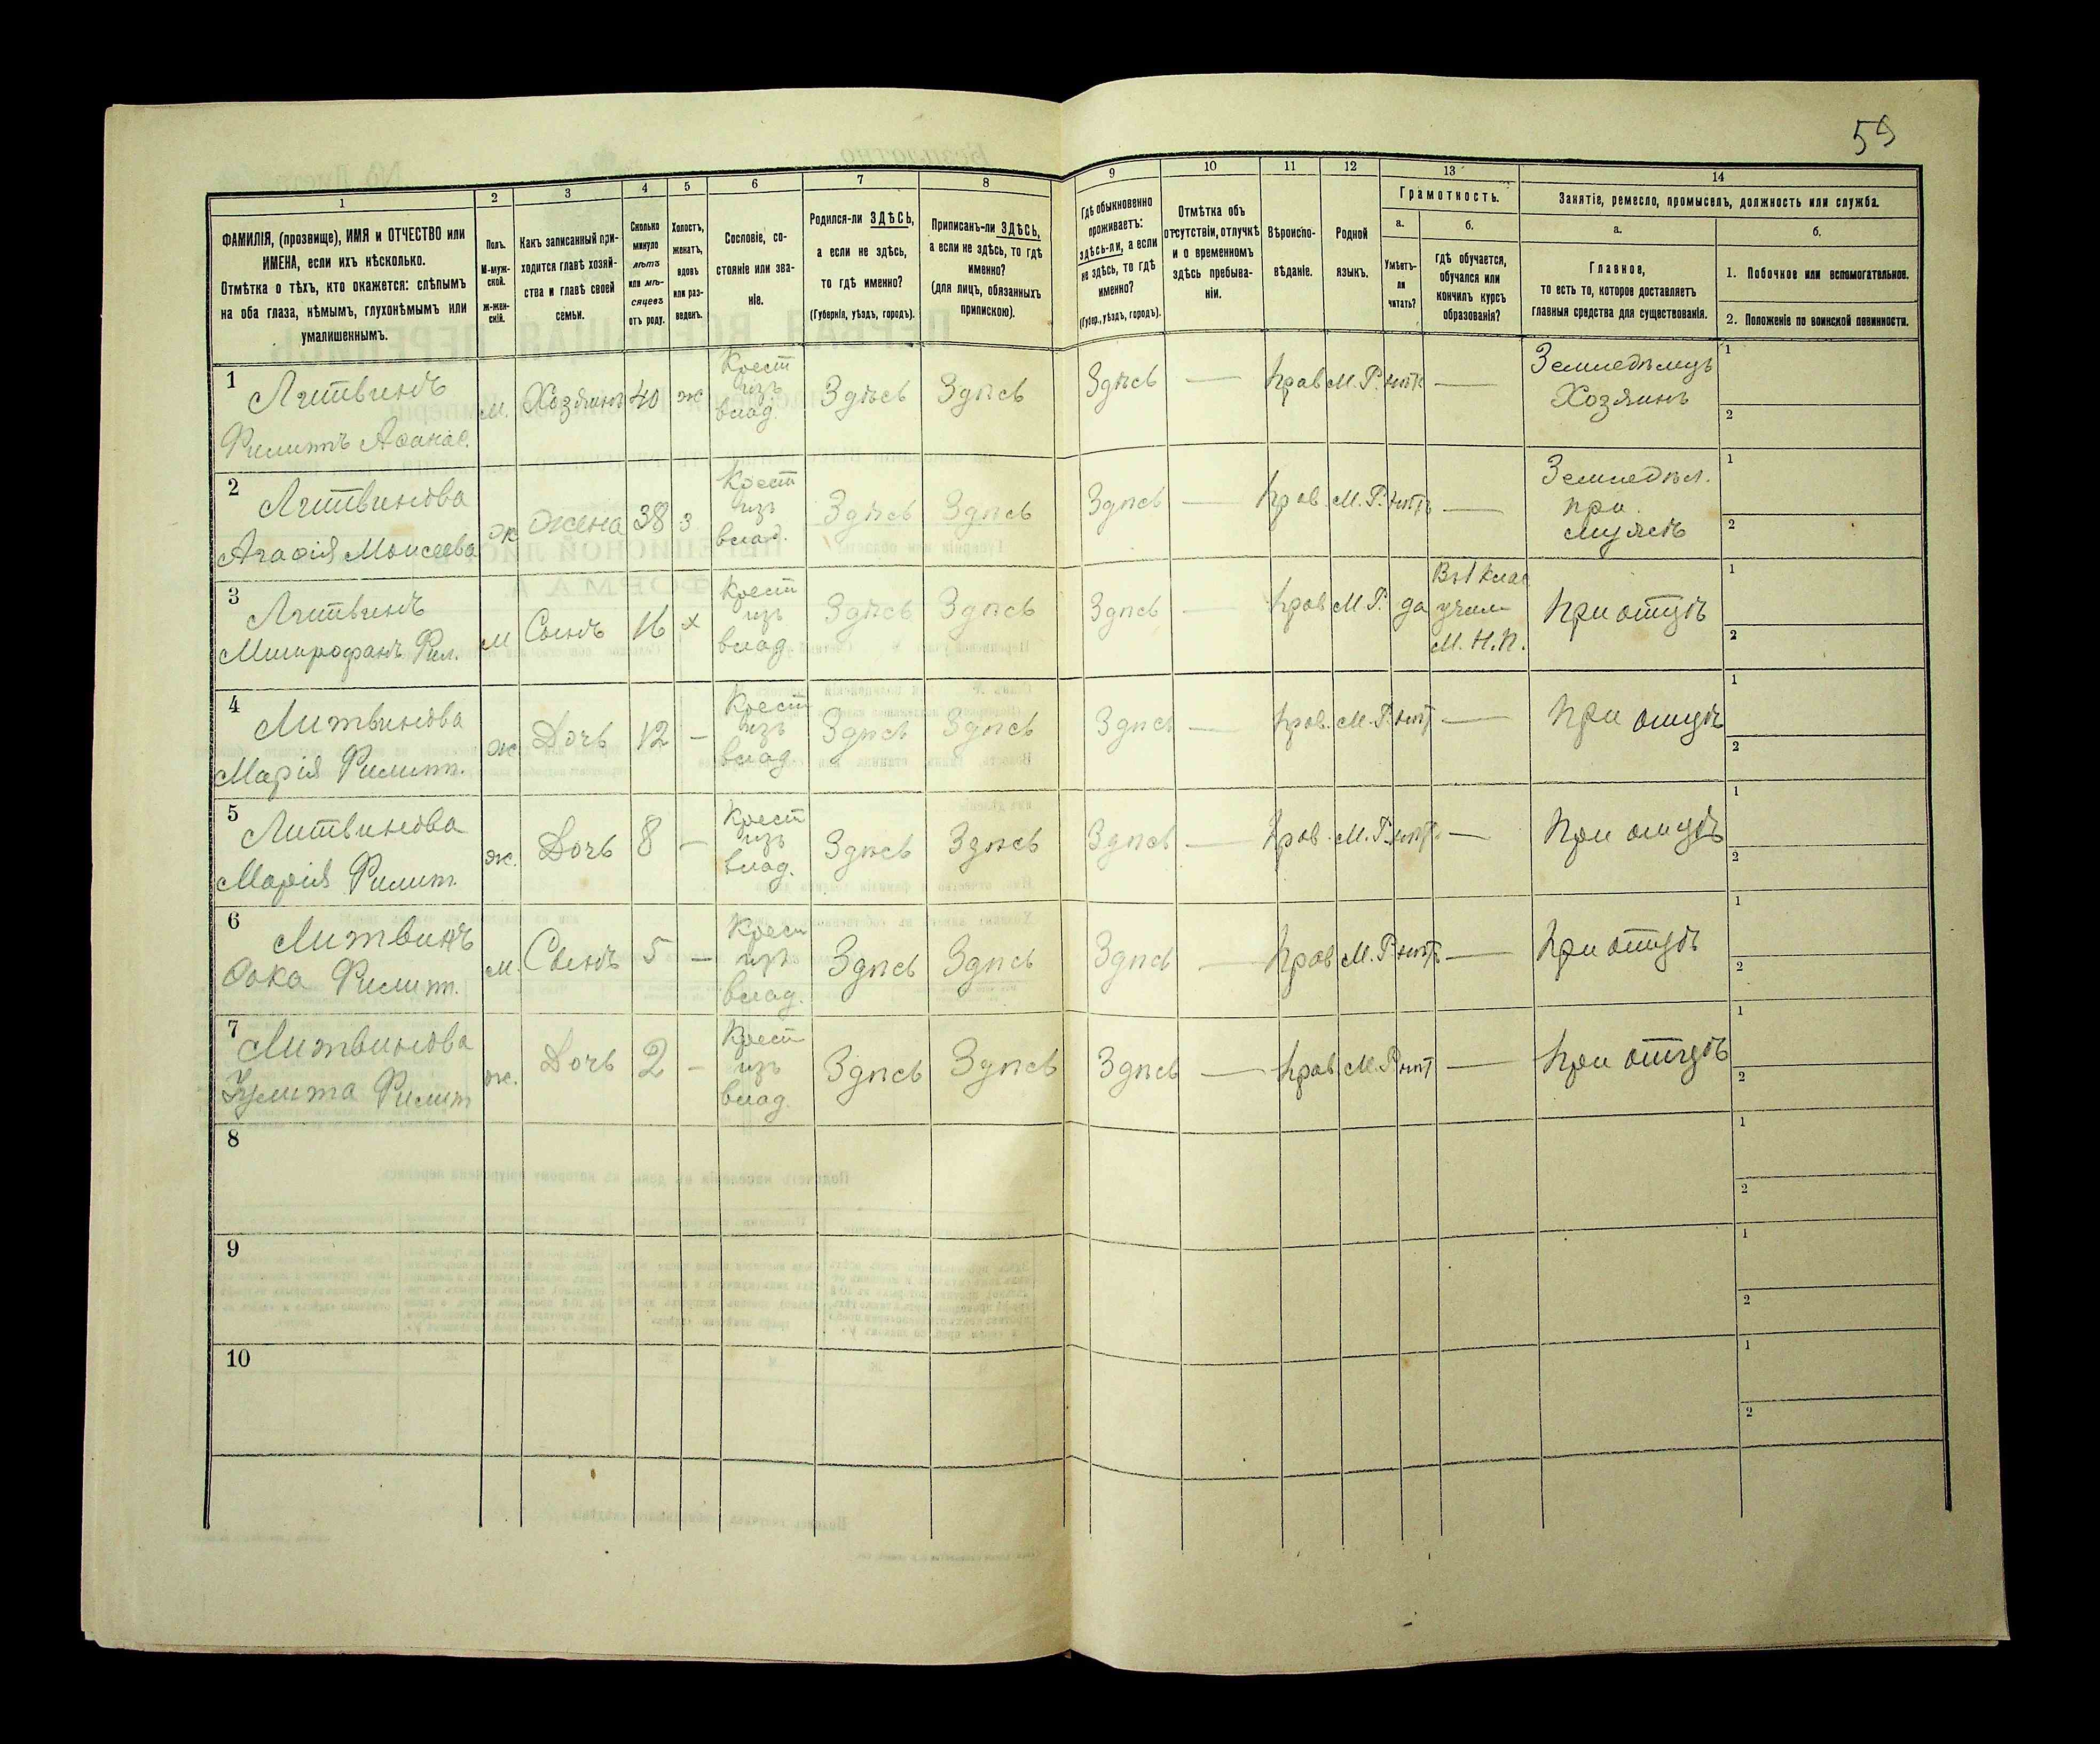 59
1 2 3 4 5 6 7 8 9 10 11 12 13 14
ФАМИЛІЯ, (прозвище), ИМЯ и ОТЧЕСТВО или
ИМЕНА, если ихъ нѣсколько.
Отмѣтка о тѣхъ, кто окажется: слѣпымъ
на оба глаза, нѣмымъ, глухонѣмымъ или
умалишеннымъ.
Полъ.
М-муж-
ской.
Ж-жен-
скій.
Какъ записанный при-
ходится главѣ хозяй-
ства и главѣ своей
семьи.
Сколько
минуло
лѣтъ
или мѣ-
сяцевъ
отъ роду.
Холостъ,
женатъ,
вдовъ
или раз-
веденъ.
Сословіе, со-
стояніе или зва-
ніе.
Родился-ли ЗДѢСЬ,
а если не здѣсь,
то гдѣ именно?
(Губернія, уѣздъ, городъ).
Приписанъ-ли ЗДѢСЬ,
а если не здѣсь, то гдѣ
именно?
(для лицъ, обязанныхъ
припискою).
Гдѣ обыкновенно
проживаетъ:
здѣсь-ли, а если
не здѣсь, то гдѣ
именно?
(Губер., уѣздъ, городъ).
Отмѣтка объ
отсутствіи, отлучкѣ
и о временномъ
здѣсь пребыва-
ніи.
Вѣроиспо-
вѣданіе.
Родной
языкъ.
Грамотность.
а.
Умѣетъ-
ли
читать?
б.
гдѣ обучается,
обучался или
кончилъ курсъ
образованія?
Занятіе, ремесло, промыселъ, должность или служба.
а.
Главное,
то есть то, которое доставляетъ
главныя средства для существованія.
б.
1. Побочное или вспомогательное.
2. Положеніе по воинской повинности.
1
Литвинъ
Филиппъ Аѳанас.
м. Хозяинъ 40 ж
Крест
изъ
влад.
Здѣсь Здѣсь Здѣсь — Прав М.Р. нѣтъ —
Земледѣлецъ
Хозяинъ
1
2
2
Литвинова
Агафія Моисеева
ж жена 38 з
Крест
изъ
влад.
Здѣсь Здѣсь Здѣсь — Прав. М.Р. нѣтъ —
Земледѣл.
при
мужѣ
1
2
3
Литвинъ
Митрофанъ Фил.
м Сынъ 16 х
Крест
изъ
влад
Здѣсь Здѣсь Здѣсь — Прав М.Р. да
Въ 1 клас
учил
М.Н.П.
При отцѣ
1
2
4
Литвинова
Марія Филипп.
ж Дочь 12 —
Крест
изъ
влад
Здѣсь Здѣсь Здѣсь — Прав. М.Р. нѣт —
При отцѣ
1
2
5
Литвинова
Марія Филип.
ж. Дочь 8 —
Крест
изъ
влад.
Здѣсь Здѣсь Здѣсь — Прав. М.Р. нѣт —
При отцѣ
1
2
6
Литвинъ
Ѳока Филип.
м. Сынъ 5 —
Крест
изъ
влад.
Здѣсь Здѣсь Здѣсь — Прав М.Р. нѣтъ —
При отцѣ
1
2
7
Литвинова
Улита Филип
ж. Дочь 2 —
Крест
изъ
влад.
Здѣсь Здѣсь Здѣсь — Прав. М.Р нѣт —
При отцѣ
1
2
8
1
2
9
1
2
10
1
2